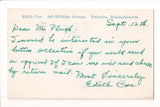 Edith Coe 345 Hillside Avenue Holyoke, Massachusetts
Sept. 12th
Dear Mr. Pugh:
I would be interested in your
button collection if you would send
approval if I can see mine and choose
by return mail.
Most Sincerely,
Edith Coe